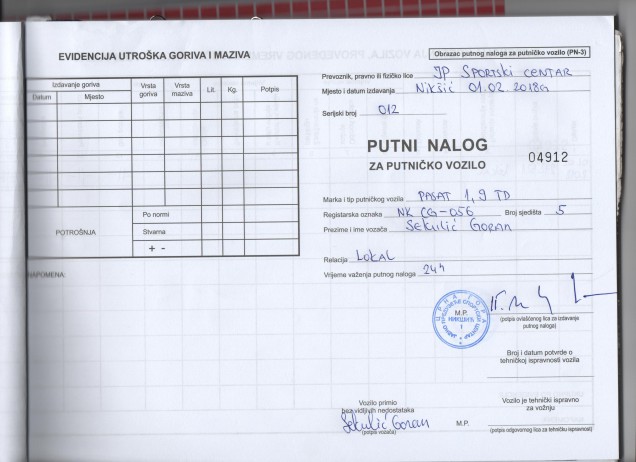 EVIDENCIJA UTROŠKA GORIVA I MAZIVA
Izdavanje goriva
Datum Mjesto Vrsta goriva Vrsta maziva Lit. Kg. Potpis
POTROŠNJA
Po normi
Stvarna
+ -
NAPOMENA:
Obrazac putnog naloga za putničko vozilo (PN-3)
Prevoznik, pravno ili fizičko lice JP SPORTSKI CENTAR
Mjesto i datum izdavanja Nikšić 01.02.2018g
Serijski broj 012
PUTNI NALOG
ZA PUTNIČKO VOZILO 04912
Marka i tip putničkog vozila PASAT 1,9 TD
Registarska oznaka NK CG-056 Broj sjedišta 5
Prezime i ime vozača Sekulić Goran
Relacija LOKAL
Vrijeme važenja putnog naloga 24h
ЦРНА ГОРА
М.Р.
НИКШИЋ
I
(potpis ovlašćenog lica za izdavanje
putnog naloga)
Broj i datum potvrde o
tehničkoj ispravnosti vozila
Vozilo primio
bez vidljivih nedostataka
Sekulić Goran
(potpis vozača)
M.P.
Vozilo je tehnički ispravno
za vožnju
(potpis odgovornog lica za tehničku ispravnost)